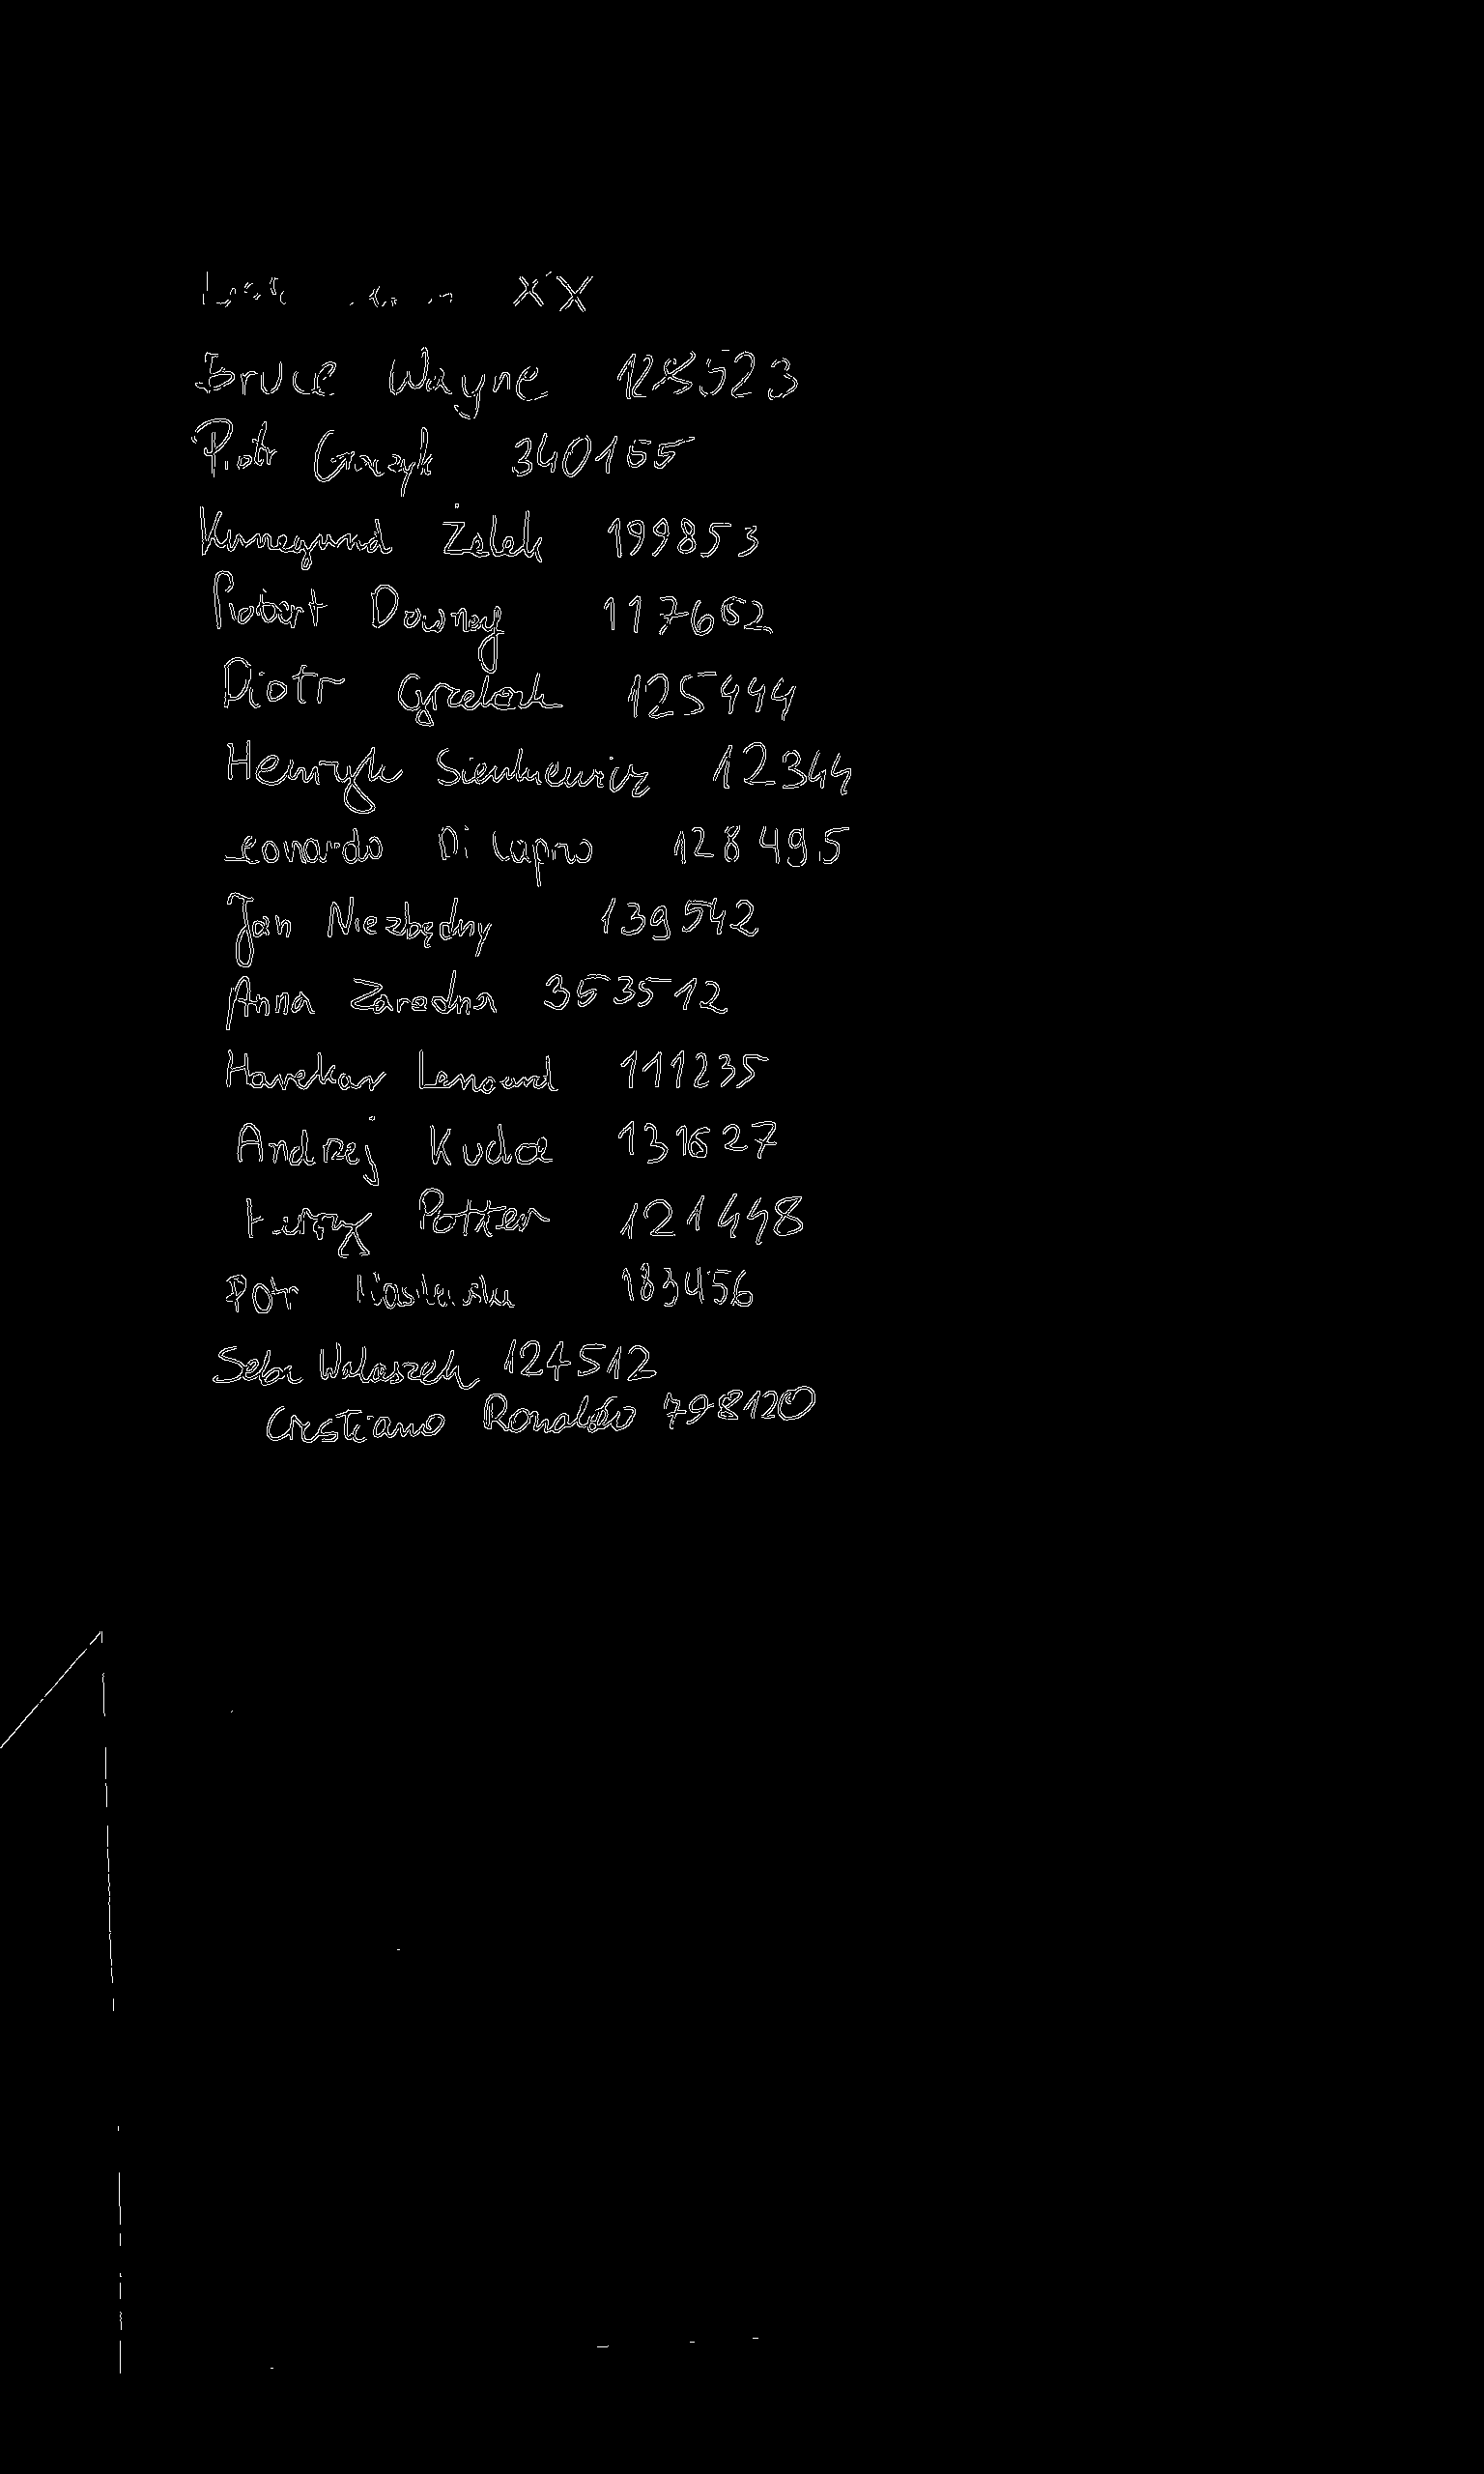 XX
Bruce Wayne 128523
Piotr 340165
Kunegund Żelek 199853
Robert Downey 117662
Piotr Grzelak 125444
Henryk Sienkiewicz 12344
Leonardo Di Caprio 128495
Jan Niezbędny 139542
Anna Zaradna 353512
Harekar Lenoard 111235
Andrzej Kudra 131627
Potter 121448
183456
Seba Walaszek 124512
Crestiano Ronaldo 798120